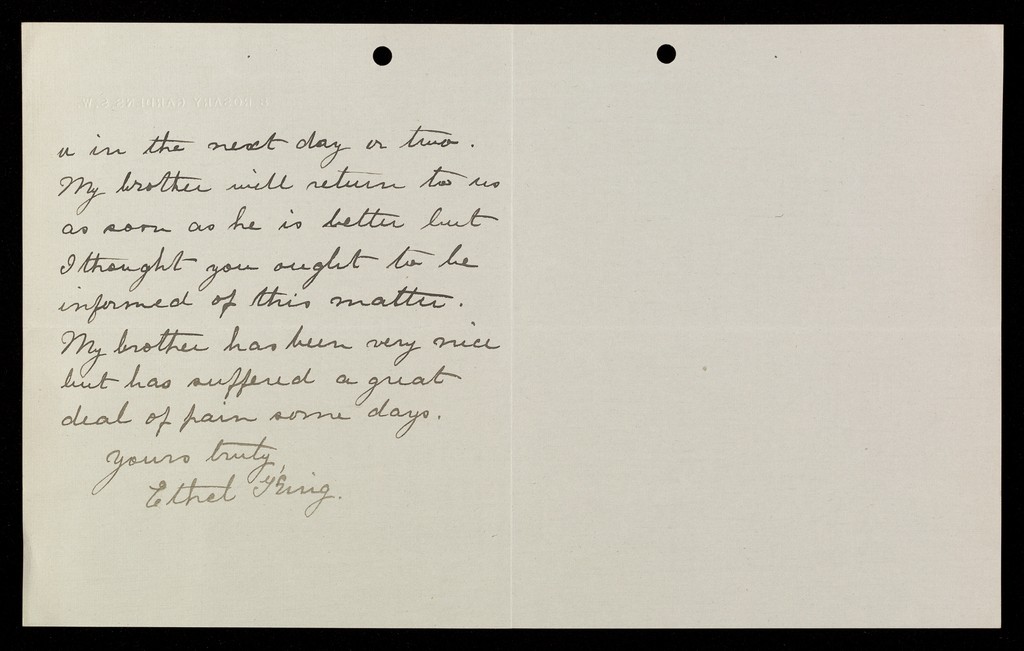 in the next day or two.
My brother will return to us
as soon as he is better but
I thought you ought to be
informed of this matter.
My brother has been very nice
but has suffered a great
deal of pain some days.
Yours truly,
Ethel King.